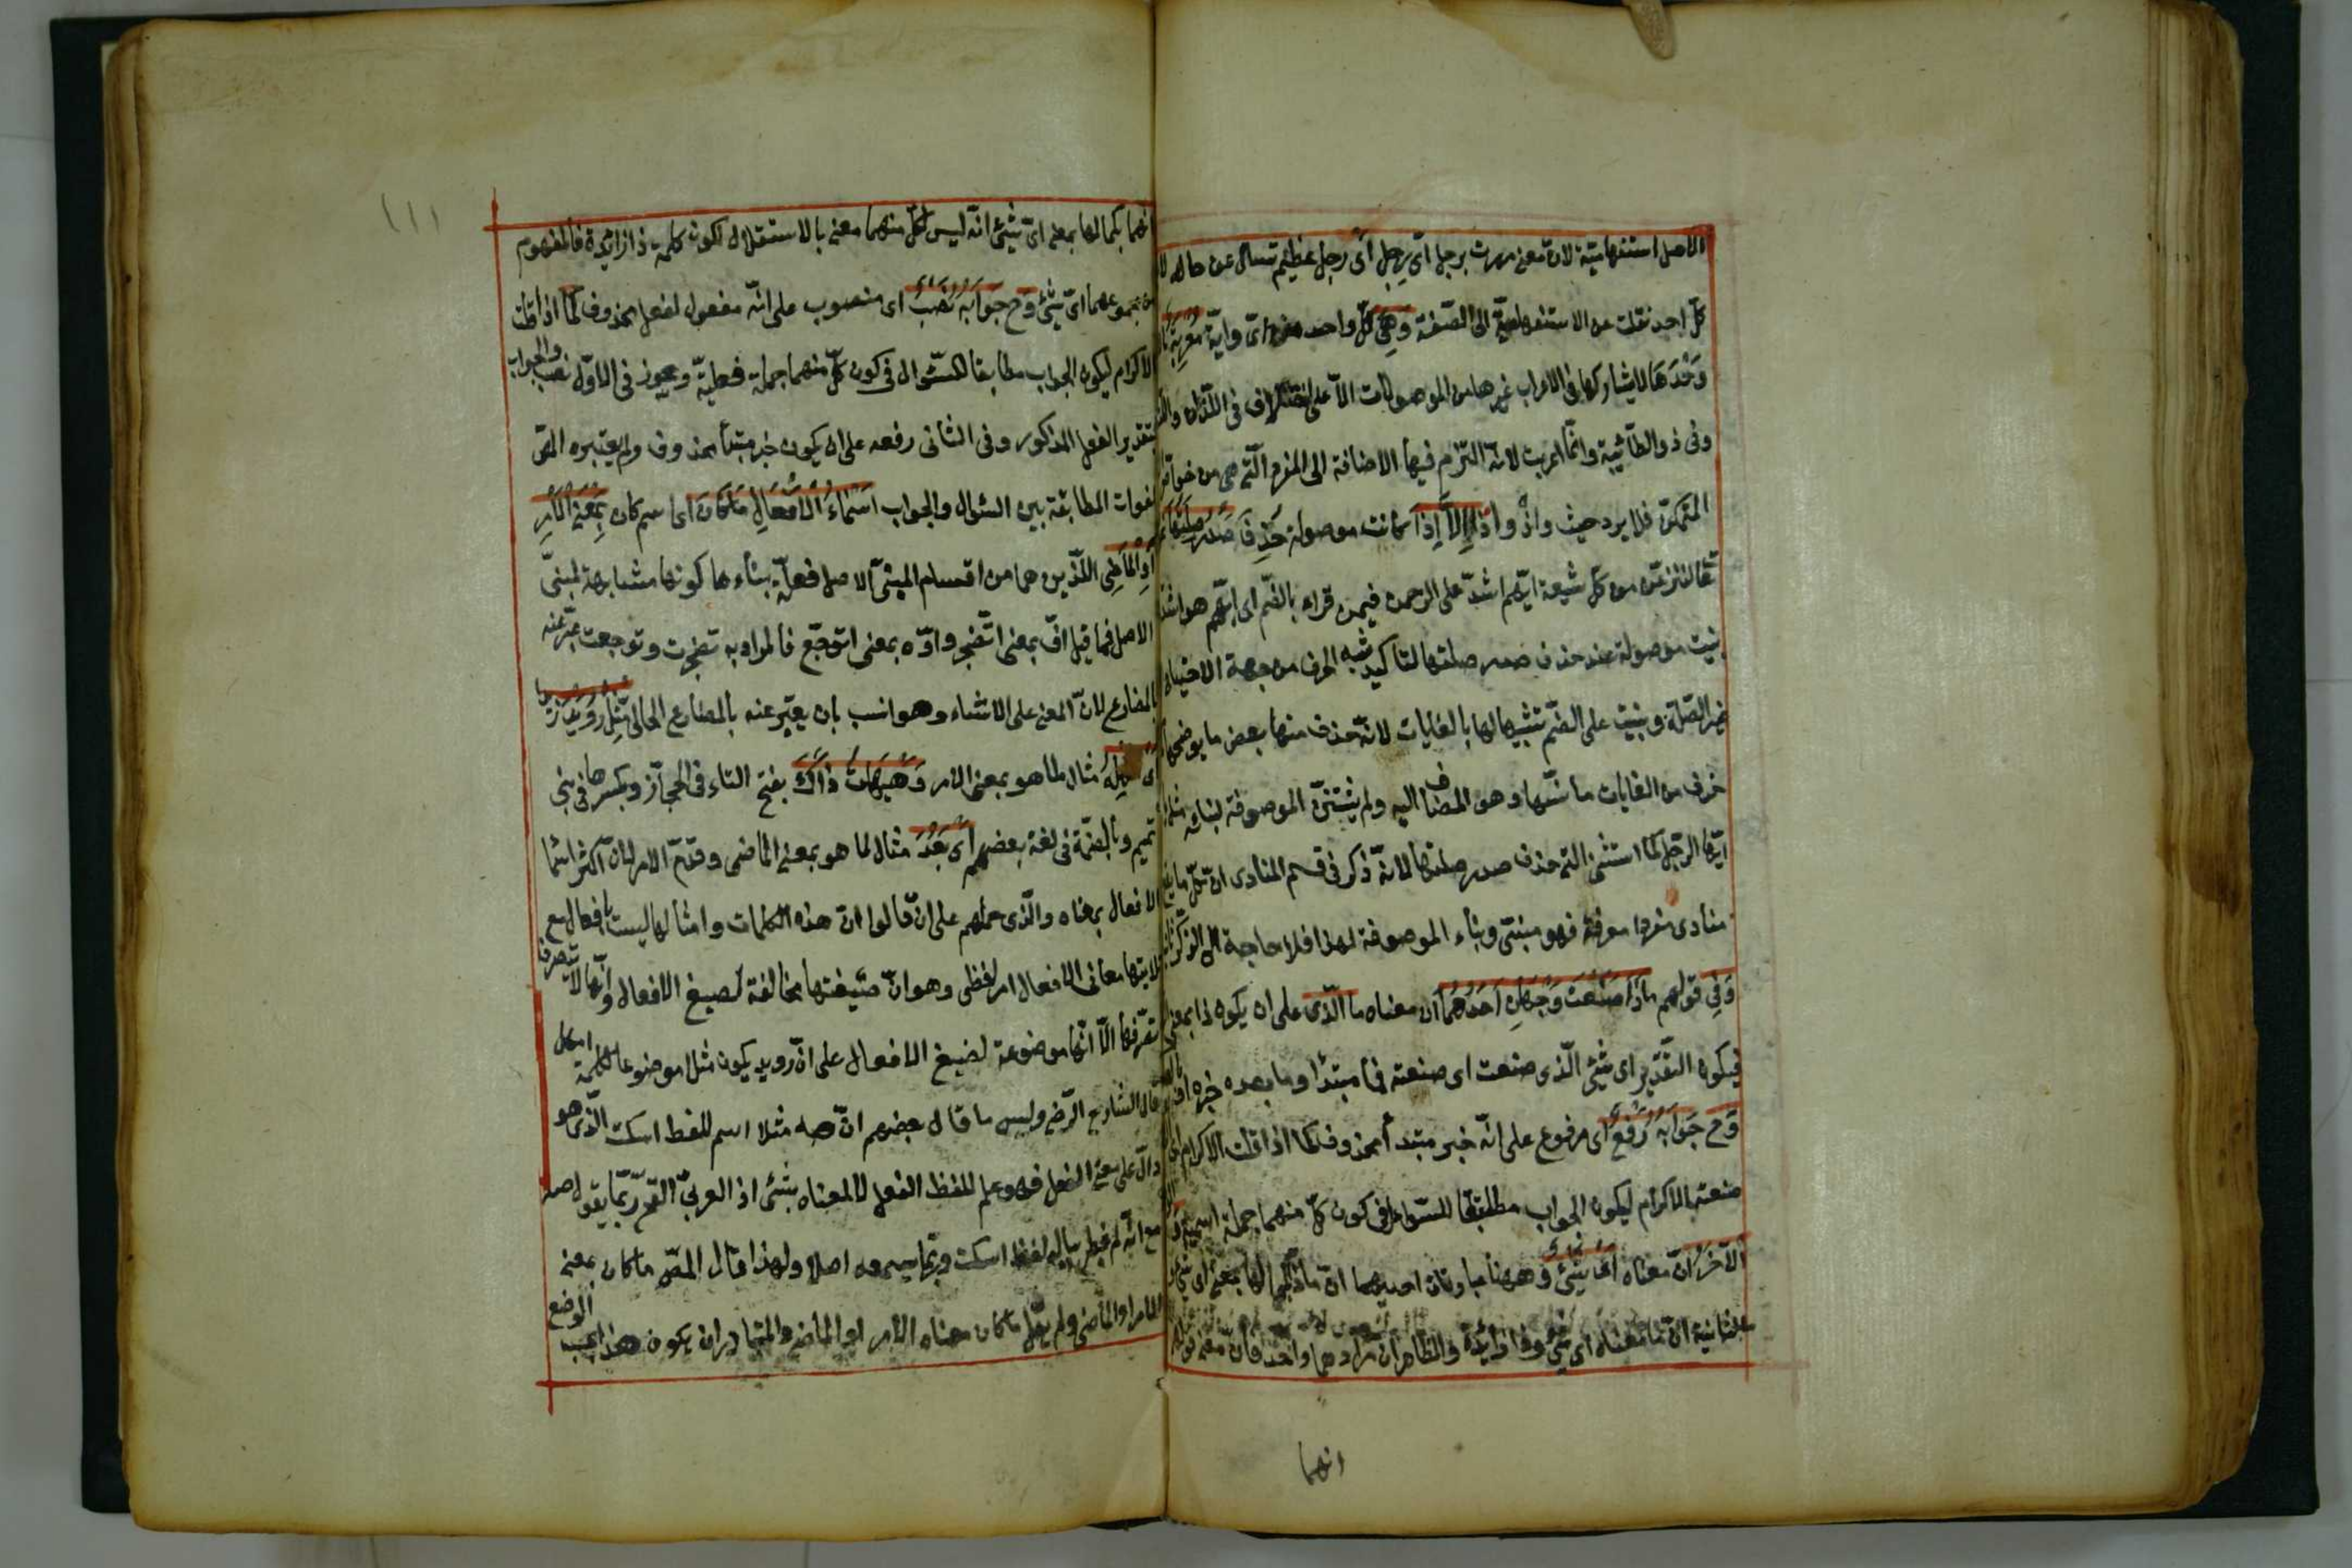 الاصل استفهامية لان معنى مررت برجل اىّ رجل اى رجل عظيم تسأل عن حاله لا
كل احد نقلت عن الاستفهامية الى الصفة وَهِىَ كلّ واحد من اى واية مُعرَبة
وَحْدَهَا لا يشاركها فى الاعراب غيرها من الموصولات الا على اختلاف فى اللذان
وفى ذو الطائية وانما اعربت لانه التزم فيها الاضافة الى المفرد التى هى من خواص
المتمكن فلا يرد حيث واذْ واذا اِلاَّ اِذَا كانت موصولة حُذِفَ صَدْرُ صِلَتِهَا
ثم لننزعن من كل شيعة ايّهم اشدّ على الرحمن فيمن قراء بالضم اى ايّهم هو اشد
بنيت موصولة عند حذف صدر صلتها لتأكيد شبه الحرف من جهة الاحتياج
غير الصلة وبنيت على الضم تشبيها لها بالغايات لانه حذف منها بعض ما يوضحها
حذف من الغايات ما بينها وهو المضاف اليه ولم يستثن الموصوفة لبنائه مثل يا
ايّها الرجل كما استثنى التى حذف صدر صلتها لانه ذكر فى قسم المنادى ان كلّ ما يقع
منادى مفردا معرفة فهو مبنى وبناء الموصوفة لهذا فلا حاجة الى الذكر
وَفِى قولهم مَاذَا صَنَعْتَ وَجْهَانِ اَحَدُهُمَا ان معناه ما الّذى على ان يكون ذا بمعنى
فيكون التقدير اى شئ الّذى صنعت اى صنعته فما مبتدا وما بعده خبره او
وَح جَوَابُهُ رَفْعٌ اى مرفوع على انّه خبر مبتدأ محذوف كما اذا قلت الاكرام اى
صنعته الاكرام ليكون الجواب مطابقا للسؤال فى كون كلّ منهما جملة اسمية
الآخَرُ انّ معناه اَىَّ شَئٍ وههنا عبارتان احديهما انّ ماذا بكمالها بمعنى اى شئ
والثانية انّ ما بمعناه اى شئ وذا زائدة والظاهر ان مرادهما واحد فانّ معنى قولهم
انهما
١١١
انهما بكمالها بمعنى اىّ شئ انّه ليس لكلّ منهما معنى بالاستقلال لكون كلمة ذا زائدة فالمفهوم
من مجموعهما اىّ شئ وَح جَوَابُهُ نَصْبٌ اى منصوب على انّه مفعول لفعل محذوف كما اذا قلت
الاكرام ليكون الجواب مطابقا للسّؤال فى كون كلّ منهما جملة فعلية ويجوز فى الاوّل نصب الجواب
بتقدير الفعل المذكور وفى الثانى رفعه على ان يكون خبر مبتدأ محذوف ولم يعتبره المص
لفوات المطابقة بين السّؤال والجواب اَسْمَاءُ الاَفْعَالِ مَا كَانَ اى اسم كان بِمَعْنَى الاَمْرِ
اَوِ الْمَاضِى اللّذين هما من اقسام المبنىّ الاصل فعلّة بناءها كونها مشابهة لمبنىّ
الاصل فما قيل افّ بمعنى اتضجر واوّه بمعنى اتوجّع فالمراد به تضجرت وتوجعت عبّر عنه
بالمضارع لانّ المعنى على الانشاء وهو انسب بان يعبّر عنه بالمضارع الحالى مِثْلُ رُوَيْدَ زَيْدًا
اى اَمْهِلْهُ مثال لما هو بمعنى الامر وَهَيْهَاتَ ذَاكَ بفتح التاء فى الحجاز وبكسرها فى بنى
تميم وبالضمّة فى لغة بعضهم اَى بَعُدَ مثال لما هو بمعنى الماضى وقدّم الامر لانّ اكثر اسماء
الافعال بمعناه والّذى حملهم على ان قالوا انّ هذه الكلمات وامثالها ليست بافعال مع
تأديتها معانى الافعال امر لفظى وهو انّ صيغتها مخالفة لصيغ الافعال وانّها لا تتصرف
تصرّفها لا انّها موضوعة لصيغ الافعال على انّ رويد يكون مثلا موضوعا لكلمة امهل
قال الشارح الرّضى وليس ما قال بعضهم انّ صه مثلا اسم للفظ اسكت الّذى هو
دالّ على معنى الفعل فهو علم للفظ الفعل لا لمعناه بشئ اذ العربىّ القحّ ربّما يقول صه
مع انّه لم يخطر بباله لفظ اسكت وربّما لم يسمعه اصلا ولهذا قال المصّ ما كان بمعنى
الامر او الماضى ولم يقل ما كان معناه الامر او الماضى والمتبادر ان يكون هذا بحسب الوضع